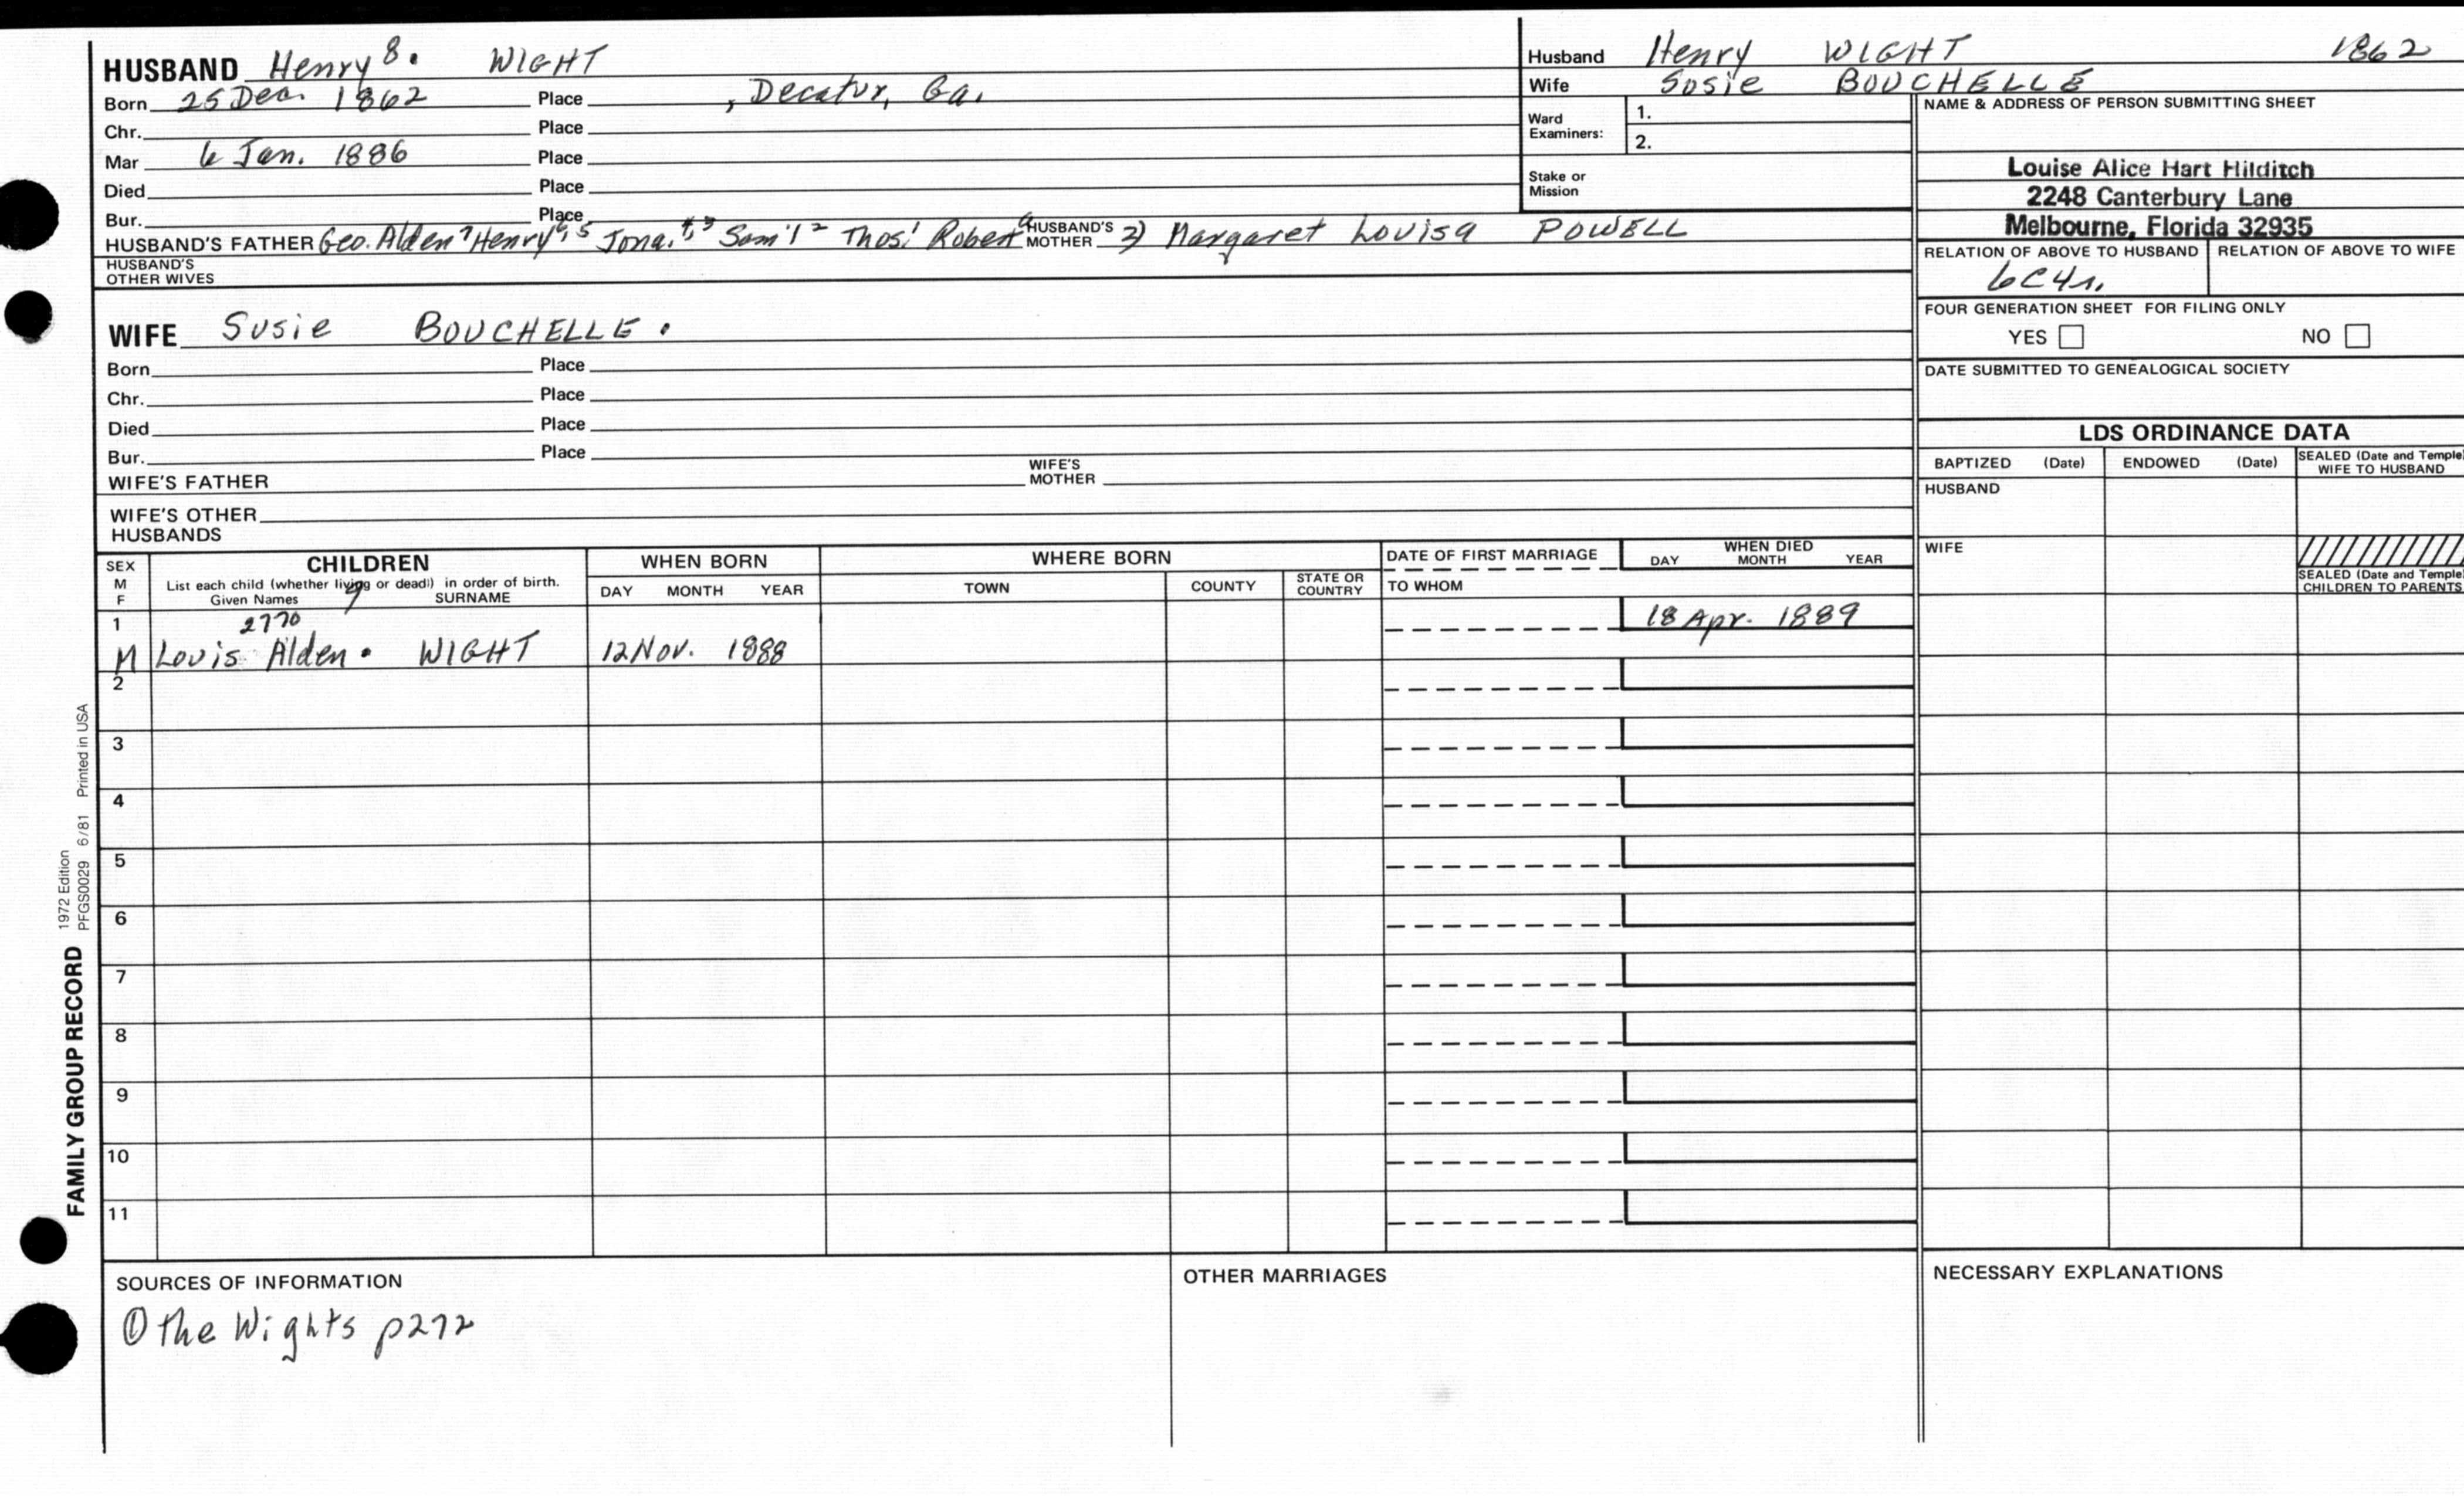 HUSBAND Henry 8. WIGHT
Born 25 Dec. 1862 Place , Decatur, Ga.
Chr. Place
Mar 6 Jan. 1886 Place
Died Place
Bur. Place
HUSBAND'S FATHER Geo. Alden 7 Henry 6, 5 Jona. 4, 3 Sam'l 2 Thos 1 Robert a HUSBAND'S MOTHER 2) Margaret Louisa POWELL
HUSBAND'S OTHER WIVES
Husband Henry WIGHT 1862
Wife Susie BOUCHELLE
Ward Examiners: 1.
2.
Stake or Mission
NAME & ADDRESS OF PERSON SUBMITTING SHEET
Louise Alice Hart Hilditch
2248 Canterbury Lane
Melbourne, Florida 32935
RELATION OF ABOVE TO HUSBAND RELATION OF ABOVE TO WIFE
6C4r.
FOUR GENERATION SHEET FOR FILING ONLY
YES NO
DATE SUBMITTED TO GENEALOGICAL SOCIETY
WIFE Susie BOUCHELLE .
Born Place
Chr. Place
Died Place
Bur. Place
WIFE'S FATHER WIFE'S MOTHER
WIFE'S OTHER HUSBANDS
LDS ORDINANCE DATA
BAPTIZED (Date) ENDOWED (Date) SEALED (Date and Temple) WIFE TO HUSBAND
HUSBAND
WIFE
SEALED (Date and Temple) CHILDREN TO PARENTS
SEX M F
CHILDREN
List each child (whether living or dead) in order of birth.
Given Names SURNAME
WHEN BORN
DAY MONTH YEAR
WHERE BORN
TOWN COUNTY STATE OR COUNTRY
DATE OF FIRST MARRIAGE
TO WHOM
WHEN DIED
DAY MONTH YEAR
1 2770 18 Apr. 1889
M Louis Alden . WIGHT 12 Nov. 1888
2
3
4
5
6
7
8
9
10
11
FAMILY GROUP RECORD
1972 Edition
PFGS0029 6/81 Printed in USA
SOURCES OF INFORMATION
① The Wights p272
OTHER MARRIAGES
NECESSARY EXPLANATIONS